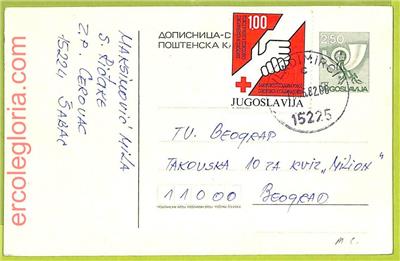 ercolegloria.com
ДОПИСНИЦА-D
ПОШТЕНСКА КА
100
JUGOSLAVIJA
2.50
JUGOSLAVIJA
15225
MAKSIMOVIĆ MILA
Z.P. CEROVAC
15224 ŠABAC
TV. BEOGRAD
TAKOVSKA 10 ZA KVIZ „MILION"
11000 BEOGRAD
M C.